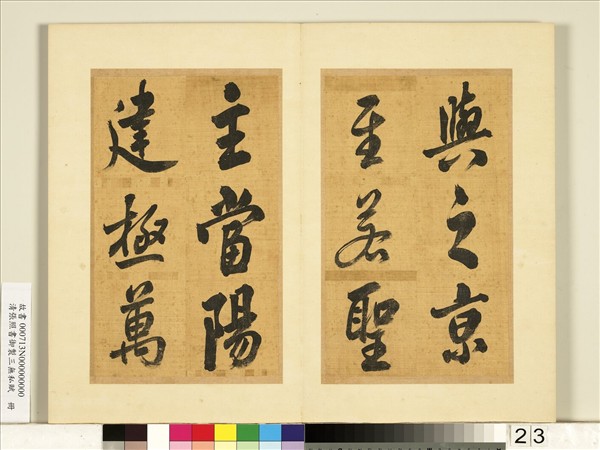 與之京
至若聖
主當陽
建極萬
故書 000713N000000000
清張照書御製三無私賦 冊
23